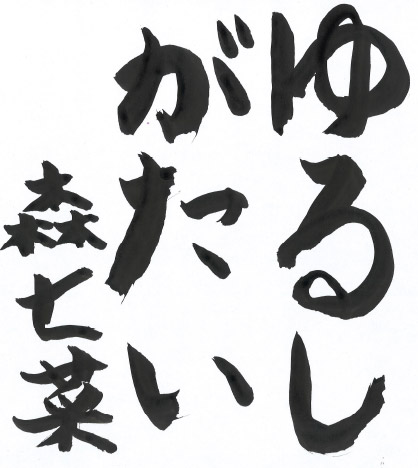 ゆるし
がたい
森七菜